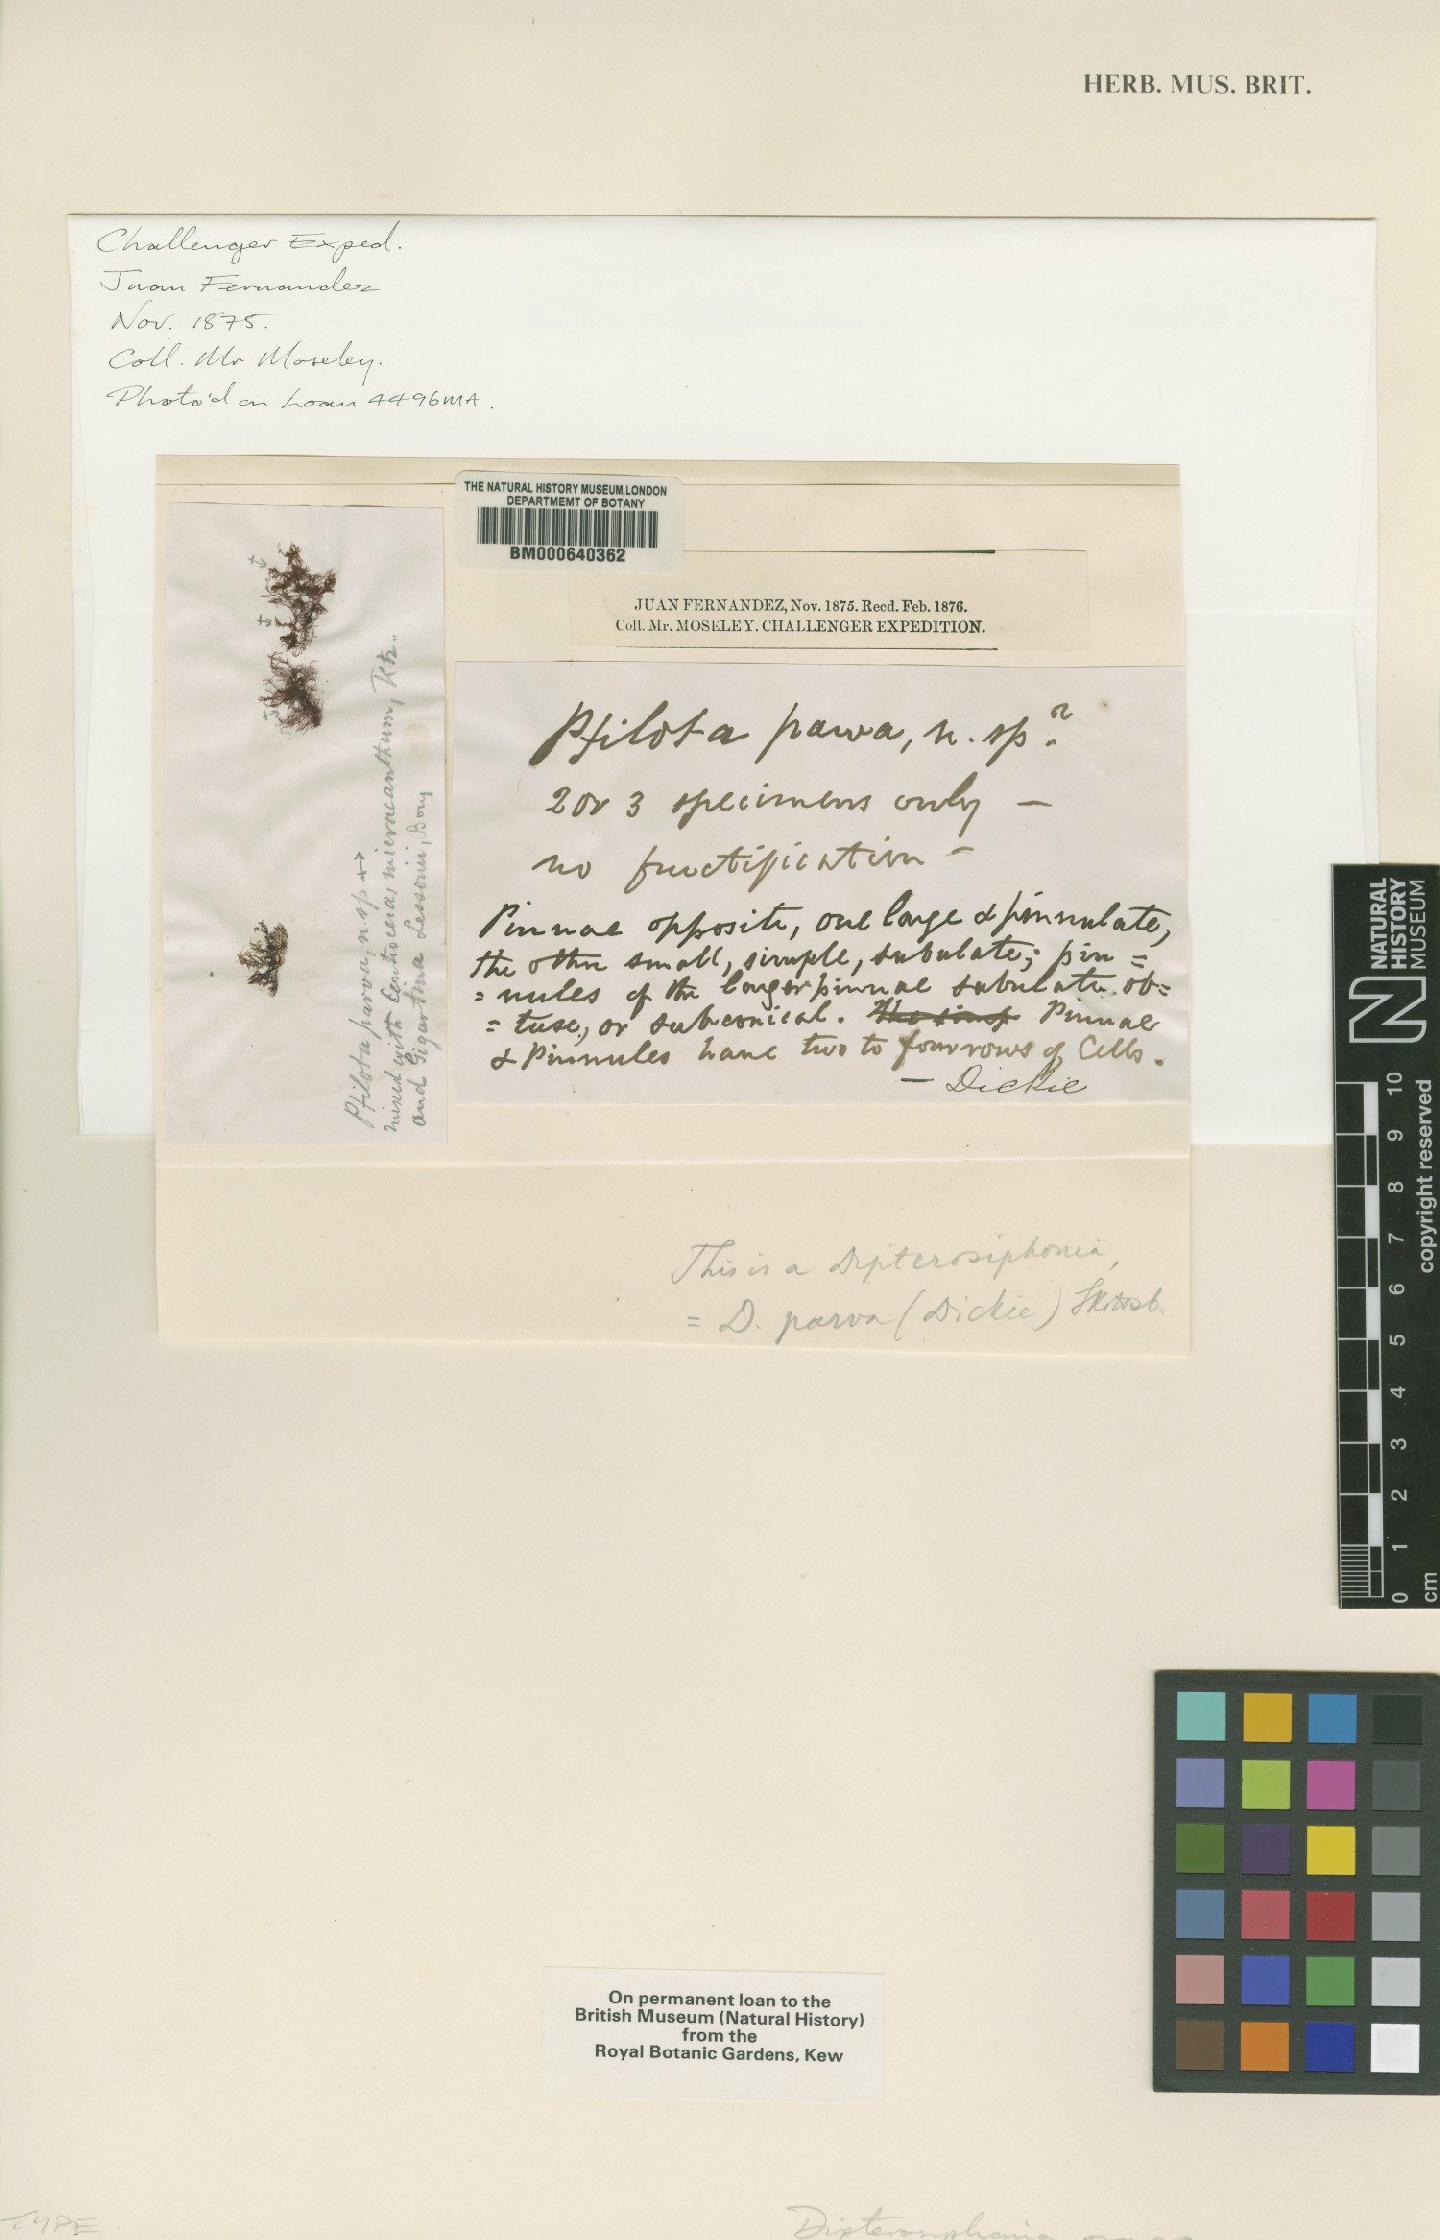 HERB. MUS. BRIT.
Challenger Exped.
Juan Fernandez
Nov. 1875.
Coll. Mr Moseley.
Photo'd on Loan 4496MA.
THE NATURAL HISTORY MUSEUM LONDON
DEPARTMEMT OF BOTANY
BM000640362
JUAN FERNANDEZ, Nov. 1875. Recd. Feb. 1876.
Coll. Mr. MOSELEY. CHALLENGER EXPEDITION.
Ptilota parva, n. sp +→
mixed with Centroceras micracanthum, Ktz.
and Gigartina Lessonii, Bory
Ptilota parva, n. sp?
2 or 3 specimens only —
no fructification —
Pinnae opposite, one large & pinnulate,
the other small, simple, subulate; pin=
=nules of the larger pinnae subulate ob=
=tuse, or subconical. The simp Pinnae
& Pinnules have two to four rows of Cells.
— Dickie
This is a Dipterosiphonia,
= D. parva (Dickie) Skottsb.
NATURAL
HISTORY
MUSEUM
copyright reserved
0 1 2 3 4 5 6 7 8 9 10
cm
On permanent loan to the
British Museum (Natural History)
from the
Royal Botanic Gardens, Kew
TYPE
Dipterosiphonia